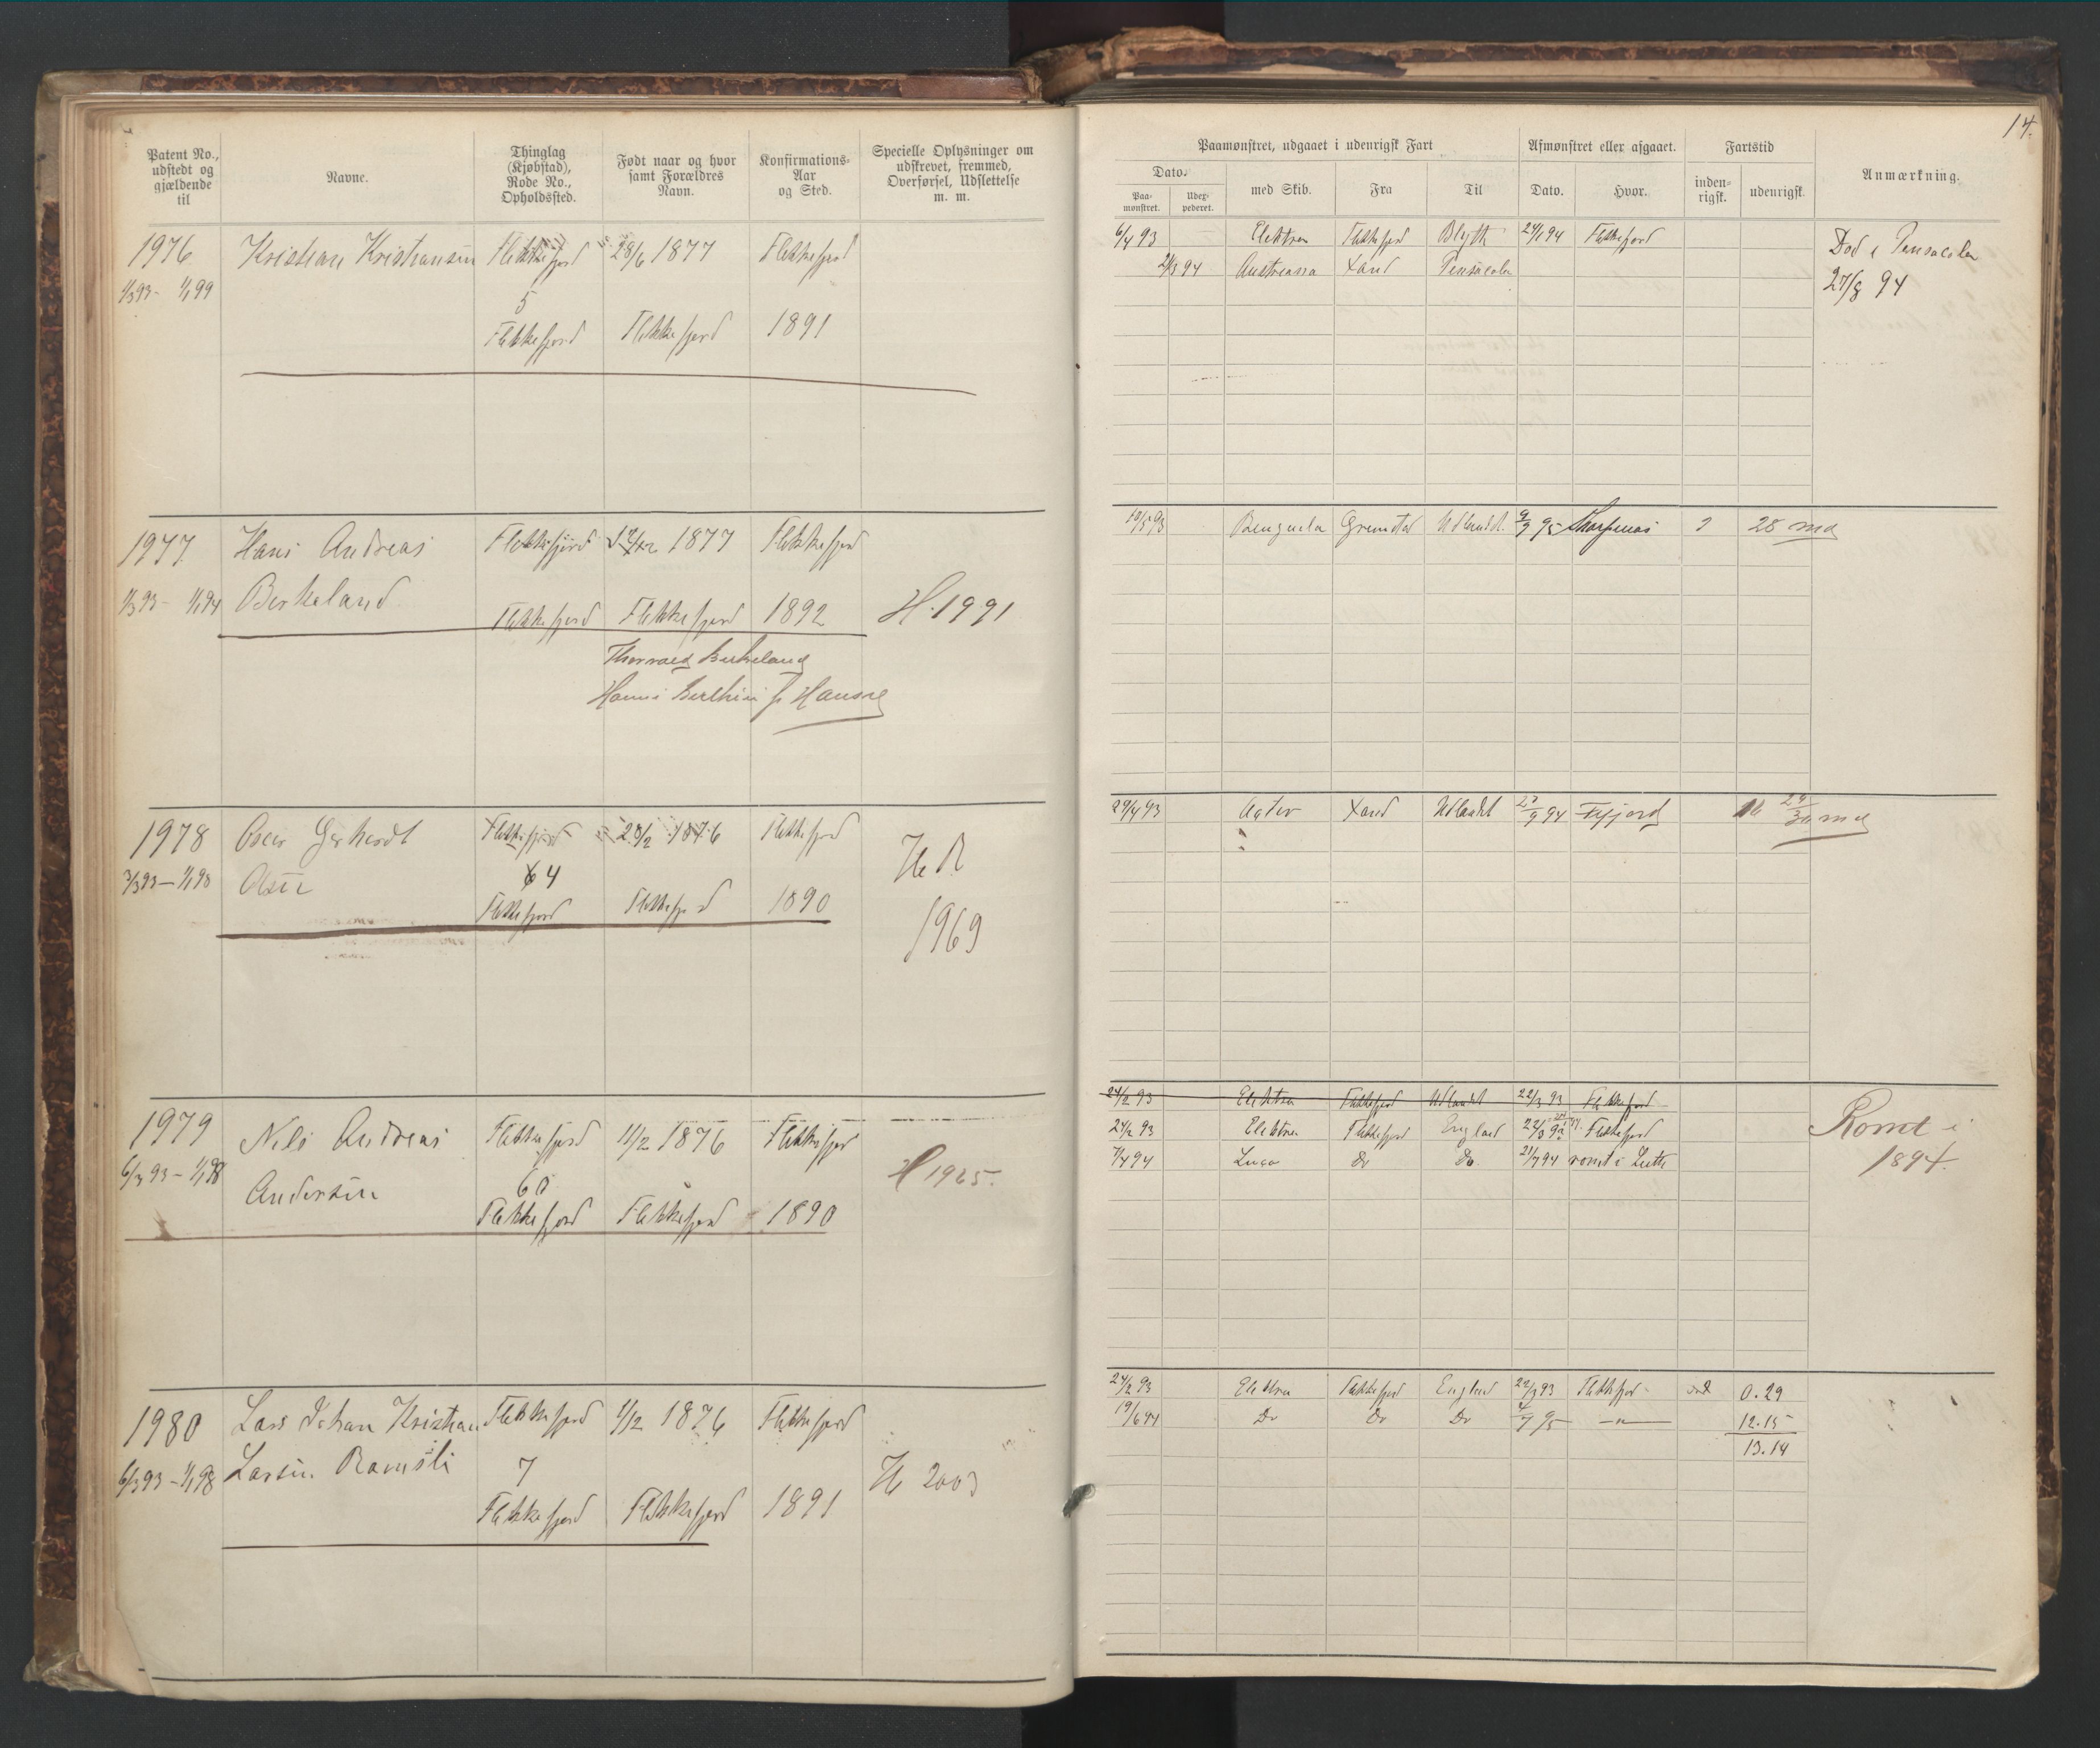 14.
Patent No., udstedt og gjældende til
Navne.
Thinglag (Kjøbstad), Rode No., Opholdssted.
Født naar og hvor samt Forældres Navn.
Konfirmations-Aar og Sted.
Specielle Oplysninger om udskrevet, fremmed, Overførsel, Udslettelse m. m.
Paamønstret, udgaaet i udenrigsk Fart
Afmønstret eller afgaaet.
Fartstid
Anmærkning.
Dato.
Paa-mønstret.
Udex-pederet.
med Skib.
Fra
Til
Dato.
Hvor.
inden-rigsk.
udenrigsk.
1976 Kristian Kristiansen Flekkefjord 28/6 1877 Flekkefjord
1/3 93 - 1/1 99
5
Flekkefjord Flekkefjord 1891
6/4 93 Elektra Flekkefjord Blyth 24/1 94 Flekkefjord
21/3 94 Austreana Xand Pensacola
Død i Pensacola
27/8 94
1977 Hans Andreas Flekkefjord 1877 Flekkefjord
1/3 93 - 1/1 94 Berkeland Flekkefjord Flekkefjord 1892 H. 1991
Thorvald Berkeland
Hansen
10/5 93 Benguela Grimstad Udlandet 9/9 95 28 md
1978 Oscar Gerhardt Flekkefjord 28/2 1876 Flekkefjord
3/3 93 - 1/1 98 Olsen 64
Flekkefjord Flekkefjord 1890
H. R.
1969
29/4 93 Agter Xand Udlandet 27/9 94 Ffjord 16 29/30 md
1979 Nils Andreas Flekkefjord 11/2 1876 Flekkefjord
6/3 93 - 1/1 98 Andersen 60
Flekkefjord Flekkefjord 1890
H 1965.
24/2 93 Elektra Flekkefjord Udlandet 22/3 93 Flekkefjord
24/2 93 Elektra Flekkefjord England Flekkefjord
7/4 94 Do Do 21/7 94 rømt i Leith
Rømt i
1894.
1980 Lars Johan Kristian Flekkefjord 1/12 1876 Flekkefjord
6/3 93 - 1/1 98 Larsen Ramsli 7
Flekkefjord Flekkefjord 1891
H 2003
24/2 93 Elektra Flekkefjord England 22/3 93 Flekkefjord 0.29
19/6 94 Do Do Do 4/7 95 —"— 12.15
13.14